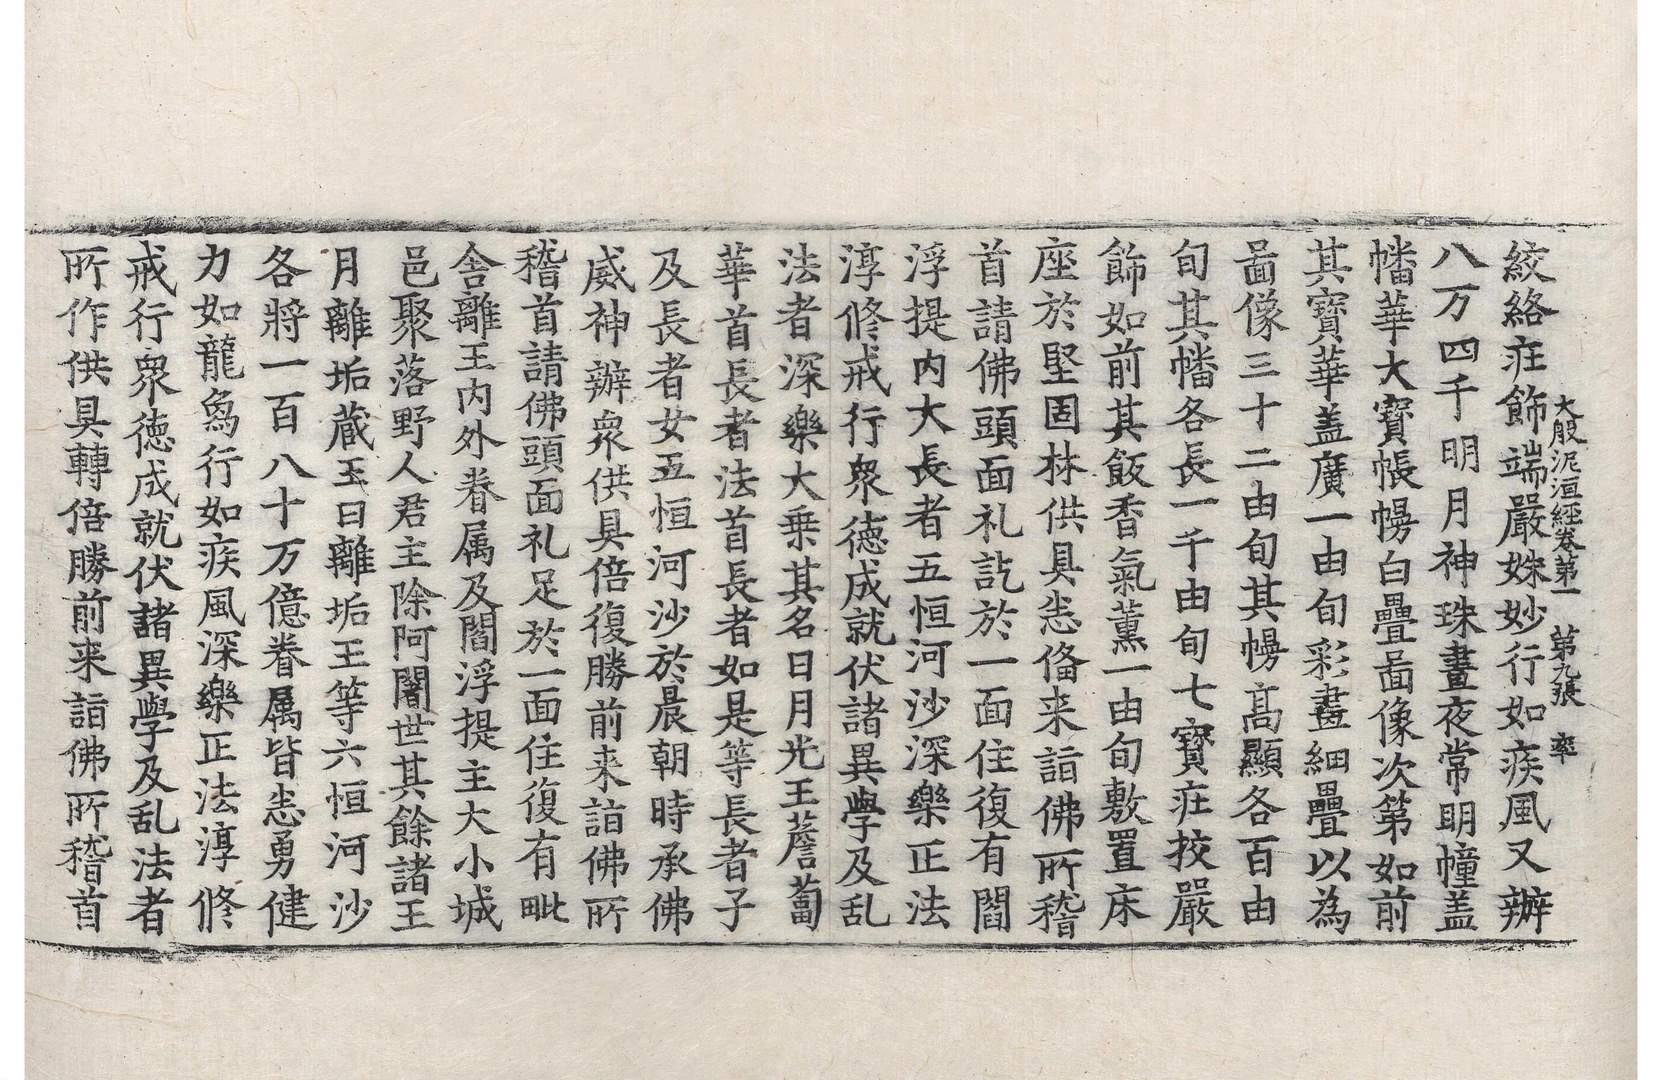 大般泥洹經卷第一　第九張　率
絞絡庄飾端嚴姝妙行如疾風又辦
八万四千明月神珠晝夜常明幢盖
幡華大寶帳幔白疊畵像次第如前
其寶華盖廣一由旬彩畵細疊以為
畵像三十二由旬其幔髙顯各百由
旬其幡各長一千由旬七寶庄挍嚴
飾如前其飯香氣薰一由旬敷置床
座於堅固林供具悉俻来詣佛所稽
首請佛頭面礼訖於一面住復有閻
浮提内大長者五恒河沙深樂正法
淳修戒行衆德成就伏諸異學及乱
法者深樂大乗其名曰月光王薝蔔
華首長者法首長者如是等長者子
及長者女五恒河沙於晨朝時承佛
威神辦衆供具倍復勝前来詣佛所
稽首請佛頭面礼足於一面住復有毗
舎離王内外眷属及閻浮提主大小城
邑聚落野人君主除阿闍世其餘諸王
月離垢蔵王曰離垢王等六恒河沙
各將一百八十万億眷属皆悉勇健
力如龍鳥行如疾風深樂正法淳修
戒行衆德成就伏諸異學及乱法者
所作供具轉倍勝前来詣佛所稽首